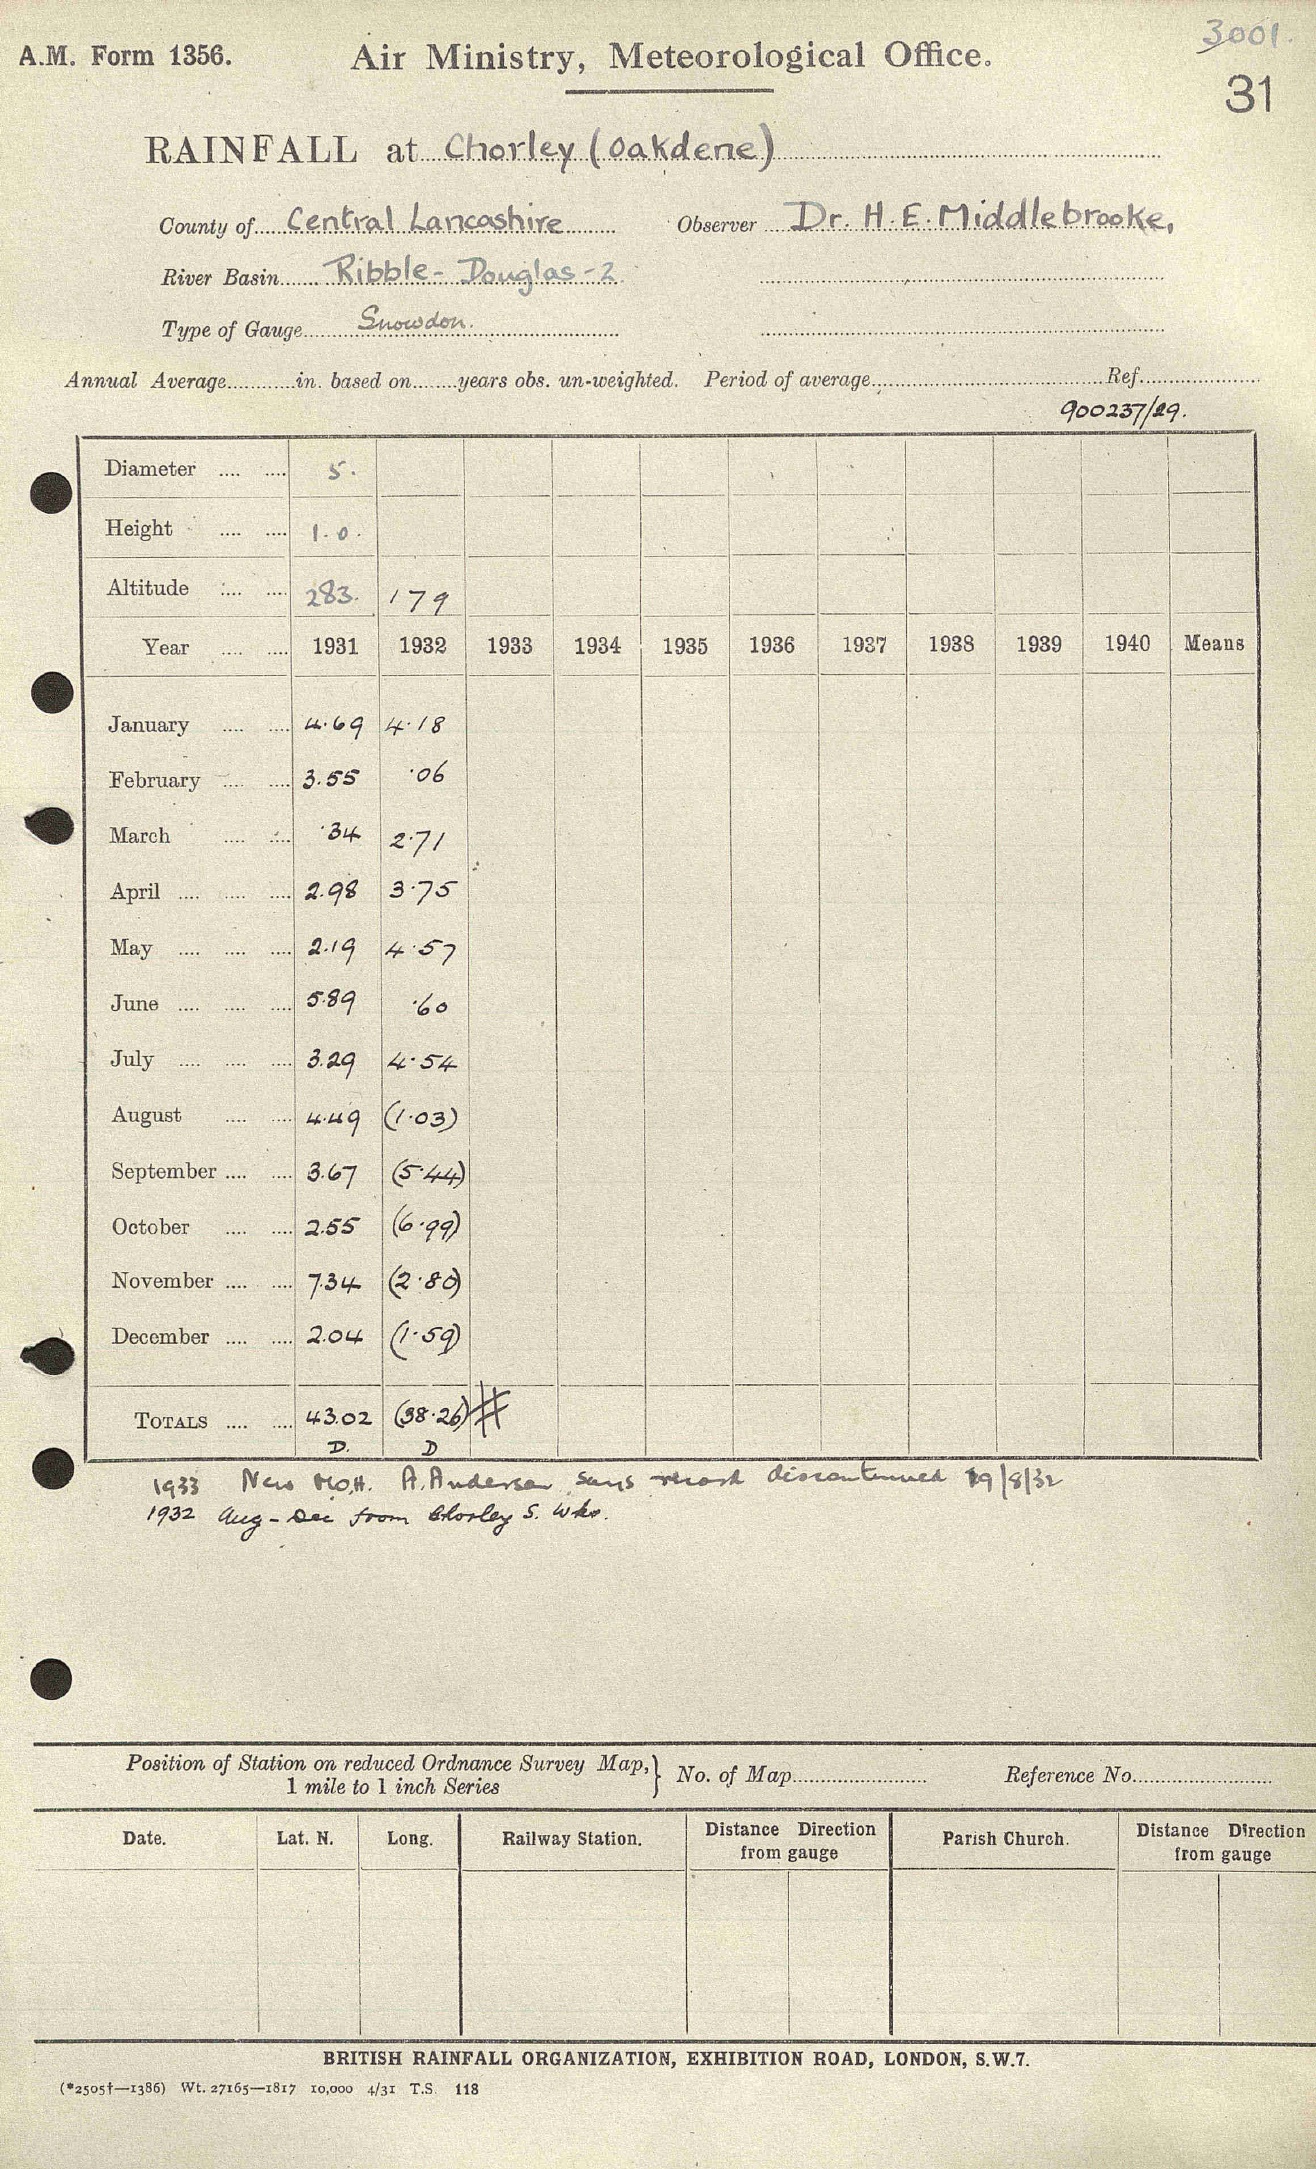 3001.
A.M. Form 1356. Air Ministry, Meteorological Office.
31
RAINFALL at Chorley (Oakdene)
County of Central Lancashire Observer Dr. H. E. Middlebrooke,
River Basin Ribble - Douglas - 2
Type of Gauge Snowdon.
Annual Average in. based on years obs. un-weighted. Period of average Ref.
900237/29.
Diameter 5.
Height 1.0.
Altitude 283. 179
Year 1931 1932 1933 1934 1935 1936 1937 1938 1939 1940 Means
January 4.69 4.18
February 3.55 .06
March .34 2.71
April 2.98 3.75
May 2.19 4.57
June 5.89 .60
July 3.29 4.54
August 4.49 (1.03)
September 3.67 (5.44)
October 2.55 (6.99)
November 7.34 (2.80)
December 2.04 (1.59)
TOTALS 43.02 (38.26) #
D. D
1933 New M.O.H. A. Anderson says record discontinued 19/8/32
1932 Aug - Dec from Chorley S. Wks.
Position of Station on reduced Ordnance Survey Map, } No. of Map Reference No.
1 mile to 1 inch Series
Date. Lat. N. Long. Railway Station. Distance Direction from gauge Parish Church. Distance Direction from gauge
BRITISH RAINFALL ORGANIZATION, EXHIBITION ROAD, LONDON, S.W.7.
(*2505†—1386) Wt. 27165—1817 10,000 4/31 T.S. 118